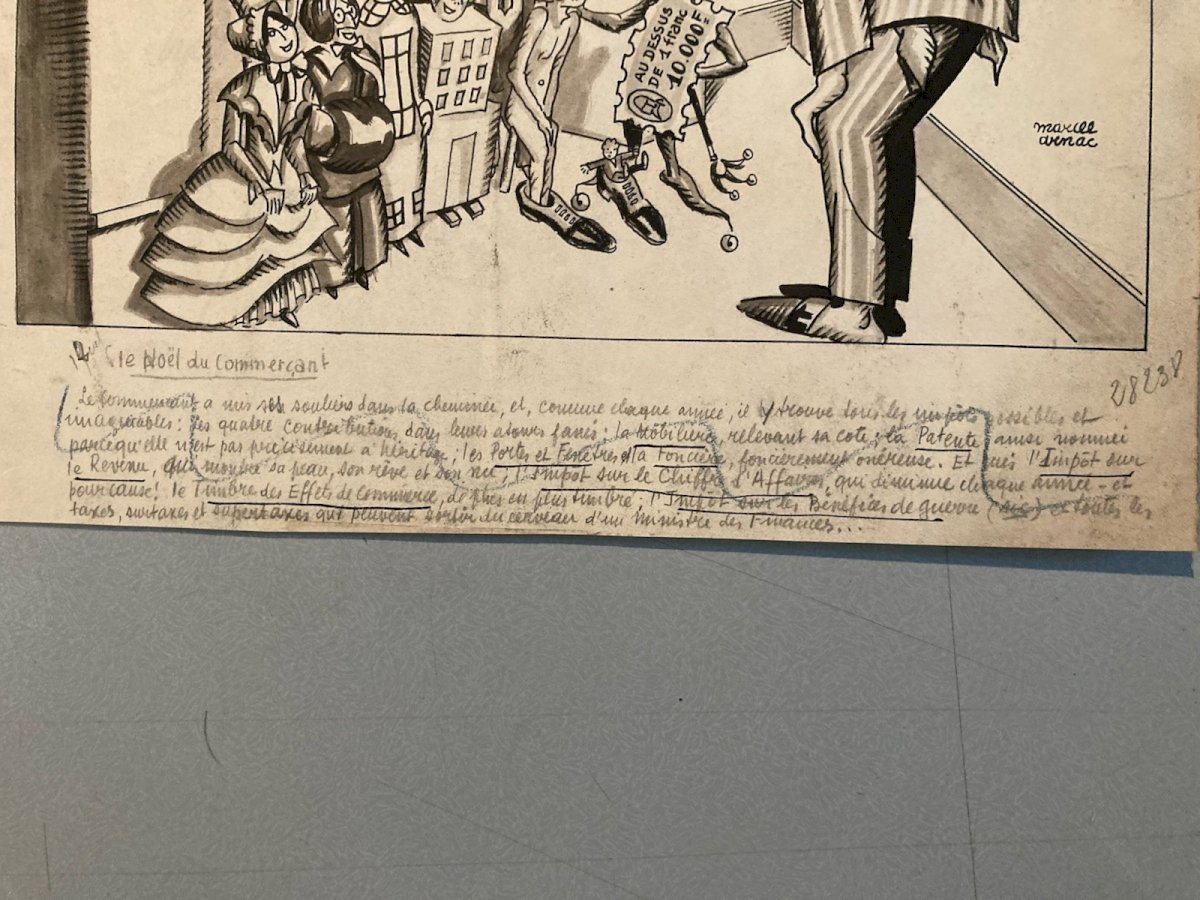 AU DESSUS
DE 1 franc
10.000F=
marcel
arnac
28238
le Noël du Commerçant
Le Commerçant a mis ses souliers dans la cheminée, et, comme chaque année, il y trouve tous les impôts possibles et
imaginables: les quatre contributions dans leurs atours fanés: la Mobilière, relevant sa cote; la Patente ainsi nommée
parcequ'elle n'est pas précisément à héritage; les Portes et Fenêtres, la Foncière, foncièrement onéreuse. Et puis l'Impôt sur
le Revenu, qui montre sa peau, son rêve et son l'Impôt sur le Chiffre d'Affaires, qui diminue chaque année - et
pour cause! le Timbre des Effets de Commerce, de plus en plus timbré; l'Impôt sur les Bénéfices de guerre (sic) et toutes les
taxes, surtaxes et supertaxes qui peuvent sortir du cerveau d'un ministre des Finances...